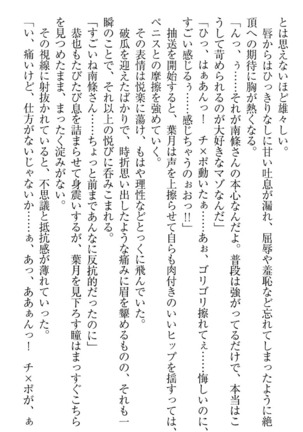 とは思えないほど雄々しい。
　唇からはひっきりなしに甘い吐息が漏れ、屈辱や羞恥など忘れてしまったように絶
頂への期待に胸が熱くなる。
「んっ、ぅ……それが南條さんの本心なんだよ。普段は強がってるだけで、本当はこ
うして苛められるのが大好きなマゾなんだ」
「ひっ、はぁあんっ！　チ×ポ動いたぁ……あぉ、ゴリゴリ擦れてぇ……悔しいのに、
すごい感じるぅ……感じちゃうのぉおっ!!」
　抽送を開始すると、葉月は声を上擦らせて自らも肉付きのいいヒップを揺すっては、
ペニスとの摩擦を激しくさせていく。
　その表情は悦楽に蕩け、もはや理性などとっくに飛んでいた。
　破瓜を迎えたばかりで、時折思い出したような痛みに眉を顰めるものの、それも一
瞬のことで、それ以上の悦びに呑みこまれる。
「すごいね南條さん……ちょっと前まであんなに反抗的だったのに」
　恭也もたびたび息を詰まらせて身震いするが、葉月を見下ろす瞳はまっすぐこちら
を見つめたまま、まったく淀みがない。
　その視線に射抜かれていると、不思議と抵抗感が薄れていった。
「い、痛いけど、仕方がないじゃないか……ぁ、あっ、ああぁんっ！　チ×ポが、ぁ